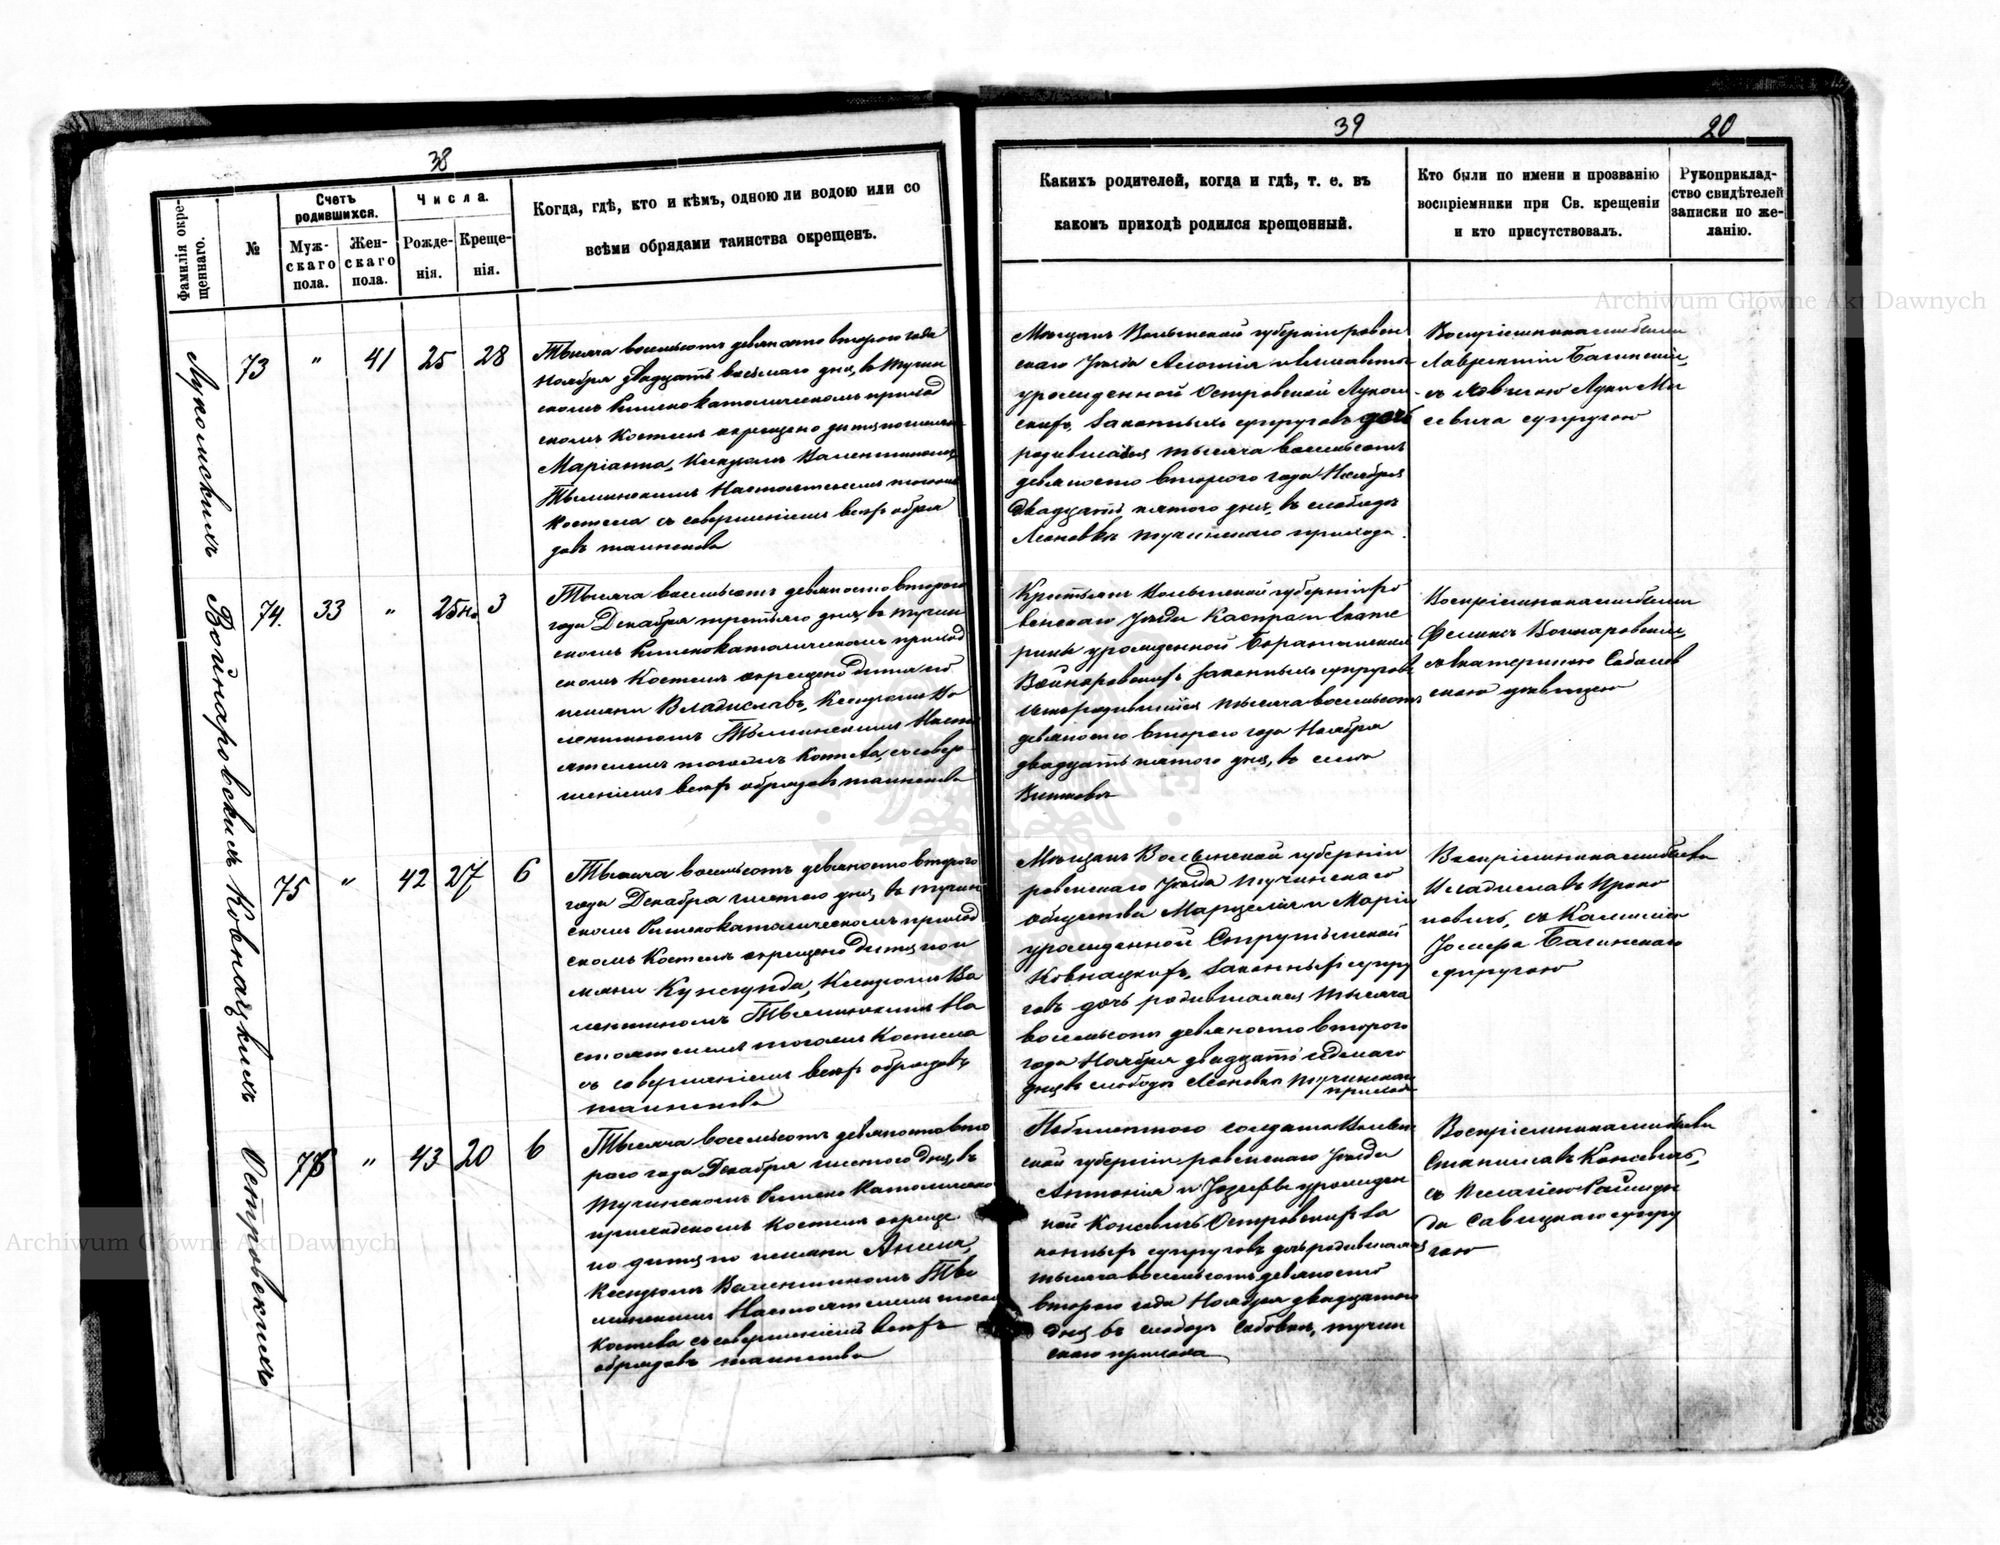 38
Фамилія окре-
щеннаго.
№
Счетъ
родившихся.
Муж-
скаго
пола.
Жен-
скаго
пола.
Числа.
Рожде-
нія.
Креще-
нія.
Когда, гдѣ, кто и кѣмъ, одною ли водою или со
всѣми обрядами таинства окрещенъ.
73
"
41
25
28
Тысяча восемьсотъ девяносто втораго года
Ноября двадцать восьмаго дня, въ Тучин
скомъ Римскокатолическомъ приход
скомъ Костелѣ окрещено дитя по имени
Маріанна, Ксендзомъ Валентиномъ
Настоятелемъ того
Костела съ совершеніемъ всѣхъ обря
довъ таинства
Войнаровскихъ
74.
33
"
25 н.
3
Тысяча восемьсотъ девяносто втораго
года Декабря третьяго дня, въ Тучин
скомъ Римскокатолическомъ приход
скомъ Костелѣ окрещено дитя по
имени Владиславъ, Ксендзомъ Ва
лентиномъ Насто
ятелемъ тогоже Костела, съ совер
шеніемъ всѣхъ обрядовъ таинства
Ковнацкихъ
75
"
42
27
6
Тысяча восемьсотъ девяносто втораго
года Декабря шестого дня, въ Тучин
скомъ Римскокатолическомъ приход
скомъ Костелѣ окрещено дитя по и
мени Кунегунда, Ксендзомъ Ва
лентиномъ На
стоятелемъ тогоже Костела
съ совершеніемъ всѣхъ обрядовъ
таинства
Островскихъ
76
"
43
20
6
Тысяча восемьсотъ девяносто вто
рого года Декабря шестого дня, въ
Тучинскомъ Римско Католическомъ
приходскомъ Костелѣ окреще
но дитя по имени
Ксендзомъ Валентиномъ
Настоятелемъ того
Костела съ совершеніемъ всѣхъ
обрядовъ таинства
39
20
Какихъ родителей, когда и гдѣ, т. е. въ
какомъ приходѣ родился крещенный.
Кто были по имени и прозванію
воспріемники при Св. крещеніи
и кто присутствовалъ.
Рукоприклад-
ство свидѣтелей
записки по же-
ланію.
Мѣщанъ Волынской губерніи ровен
скаго Уѣзда
урожденной Островской
законныхъ супруговъ дочь
родившаяся тысяча восемьсотъ
девяносто второго года Ноября
двадцать пятого дня, въ слободѣ
Леоновкѣ Тучинскаго прихода.
Воспріемниками были
Лаврентій Багинскій
супругою
Крестьянъ Волынской губерніи Ро
венскаго Уѣзда Каспра и Екате
рины урожденной
Войнаровскихъ законныхъ супруговъ
сынъ родившійся тысяча восемьсотъ
девяносто второго года Ноября
двадцать пятого дня, въ селѣ
Воспріемниками были
Феликсъ Войнаровскій
съ Екатериною
скою дѣвицею
Мѣщанъ Волынской губерніи
ровенскаго Уѣзда Тучинскаго
общества Марцелія и Маріи
урожденной
Ковнацкихъ, законныхъ супру
говъ дочь родившаяся тысяча
восемьсотъ девяносто второго
года Ноября двадцать седьмаго
дня въ слободѣ Леоновкѣ Тучинскаго
прихода
Воспріемниками были
Владиславъ Проко
повичъ, съ
Іосифа Багинскаго
супругою
солдата Волын
ской губерніи ровенскаго Уѣзда
Антонія и Іозефы урожден
ной Островскихъ за
конныхъ супруговъ дочь родившаяся
тысяча восемьсотъ девяносто
второго года Ноября двадцатого
дня въ слободѣ Тучин
скаго прихода
Воспріемниками были
Станиславъ
съ
да Савицкаго супру
гою
Archiwum Główne Akt Dawnych
Archiwum Główne Akt Dawnych